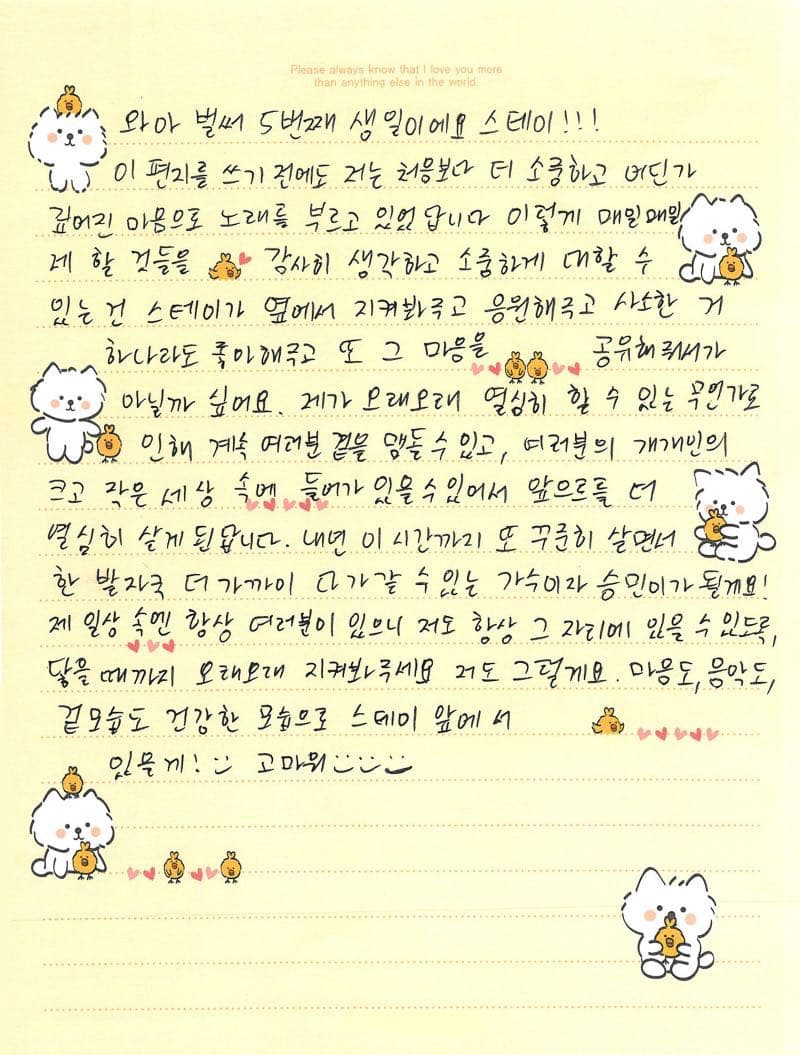 Please always know that I love you more
than anything else in the world.
와아 벌써 5번째 생일이에요 스테이!!!
이 편지를 쓰기 전에도 저는 처음보다 더 소중하고 어딘가
깊어진 마음으로 노래를 부르고 있었답니다 이렇게 매일매일
제 할 것들을 감사히 생각하고 소중하게 대할 수
있는 건 스테이가 옆에서 지켜봐주고 응원해주고 사소한 거
하나라도 좋아해주고 또 그 마음을 공유해줘서가
아닐까 싶어요. 제가 오래오래 열심히 할 수 있는 무언가로
인해 계속 여러분 곁을 맴돌 수 있고, 여러분의 개개인의
크고 작은 세상 속에 들어가 있을 수 있어서 앞으로를 더
열심히 살게 된답니다. 내년 이 시간까지 또 꾸준히 살면서
한 발자국 더 가까이 다가갈 수 있는 가수이자 승민이가 될게요!
제 일상 속엔 항상 여러분이 있으니 저도 항상 그 자리에 있을 수 있도록,
닿을 때까지 오래오래 지켜봐주세요 저도 그럴게요. 마음도, 음악도,
겉모습도 건강한 모습으로 스테이 앞에 서
있을게! 고마워